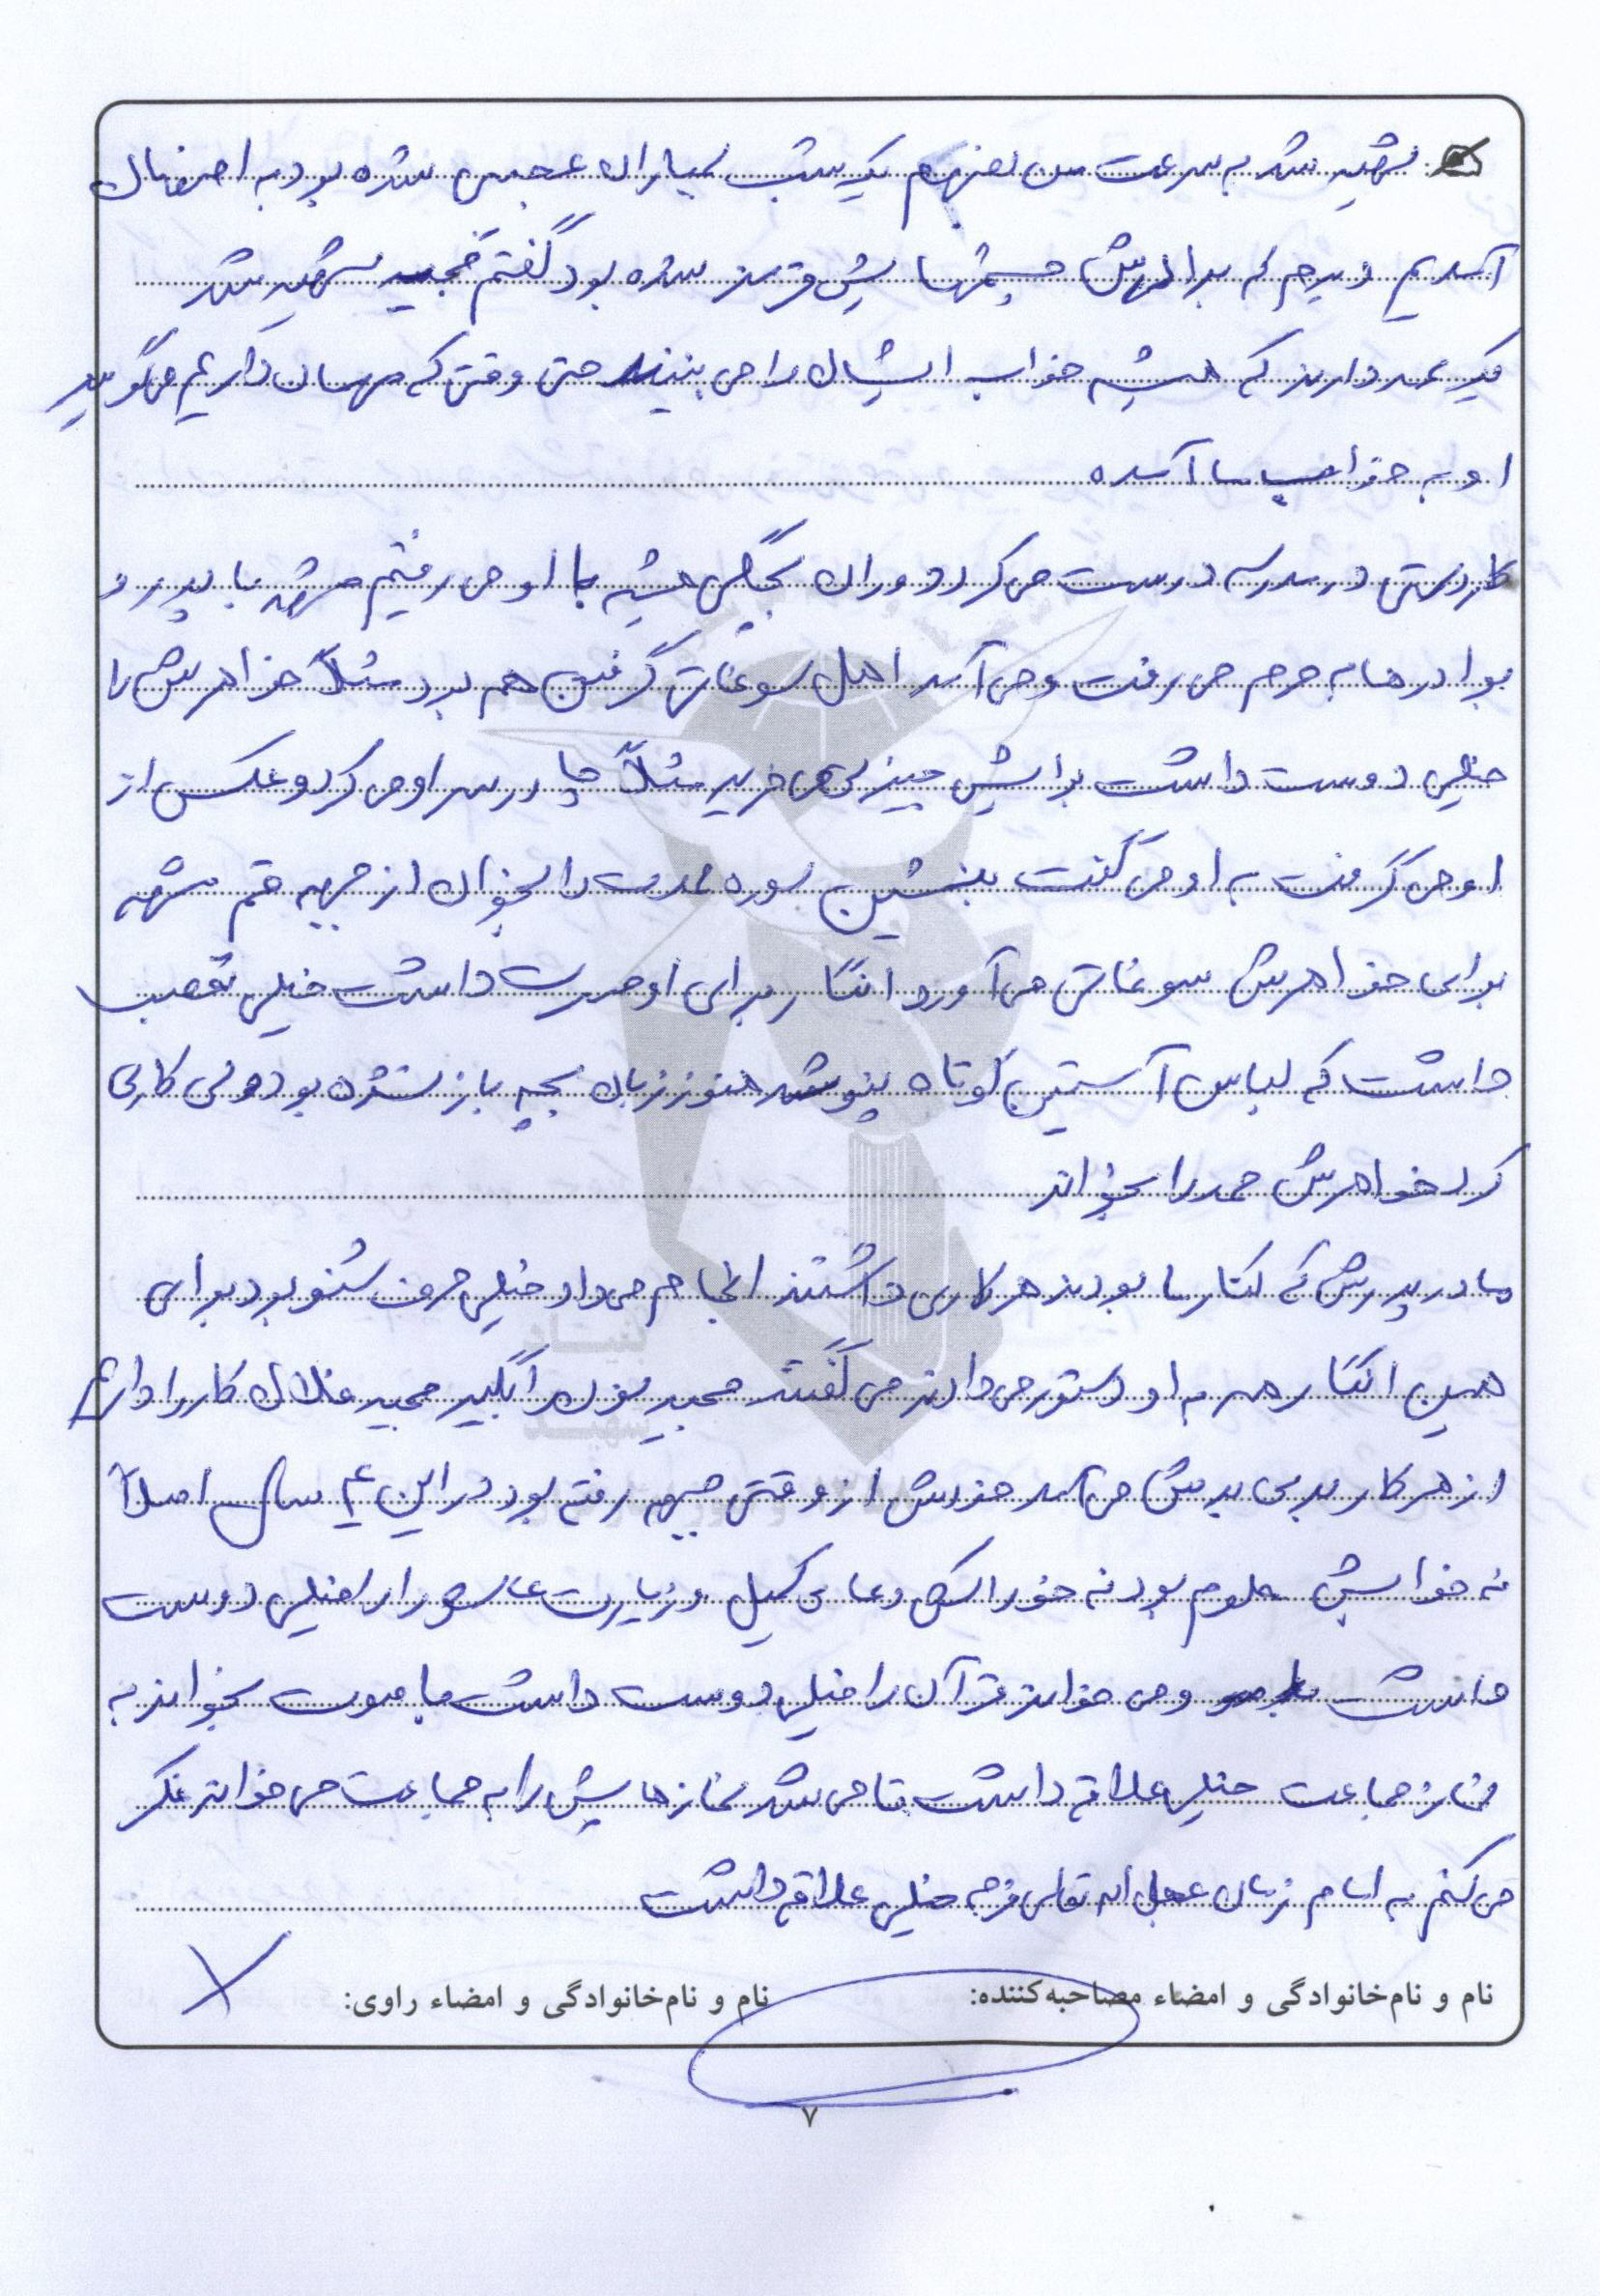 شهید شد به سرعت من نفهمم یک شب بمباران عجیبی شده بود به اصفهان
آمدیم دیدم که برادرش چشمهایش قرمز شده بود گفتم مجید شهید شد
یک عمه داریم که همیشه خواب ایشان را می بینند حتی وقتی که مهمان داریم می گوید
او به خواب ما آمده
کاردستی در مدرسه درست می کرد دوران بچگی همیشه با او می رفتیم مشهد با پدر و
برادرها به حرم می رفت و می آمد اهل سوغاتی گرفتن هم بود مثلاً خواهرش را
خیلی دوست داشت برایش چیزی می خرید مثلاً چادر سر او می کرد و عکس از
او می گرفت به او می گفت بنشین سوره حمد را بخوان از جبهه قم مشهد
برای خواهرش سوغاتی می آورد انگار برای او حسرت داشت خیلی تعصب
داشت که لباس آستین کوتاه نپوشد هنوز زبان بچه باز نشده بود ولی کاری
کرد خواهرش حمد را بخواند
مادر پدرش که کنار ما بودند هر کاری داشتند انجام می داد خیلی حرف شنو بود برای
همین انگار همه به او دستور می دادند می گفتند مجید نون را بگیر مجید فلان کار را داریم
از هر کار بدی بدش می آمد خودش از وقتی جبهه رفته بود در این ۴ سال اصلاً
نه خوابش معلوم بود نه خوراکش دعای کمیل و زیارت عاشورا را خیلی دوست
داشت و می خواند قرآن را خیلی دوست داشت با صوت بخواند به
نماز جماعت خیلی علاقه داشت تا می شد نمازهایش را به جماعت می خواند فکر
می کنم به امام زمان عجل الله تعالی فرجه خیلی علاقه داشت
نام و نام‌خانوادگی و امضاء مصاحبه‌کننده: نام و نام‌خانوادگی و امضاء راوی:
۷